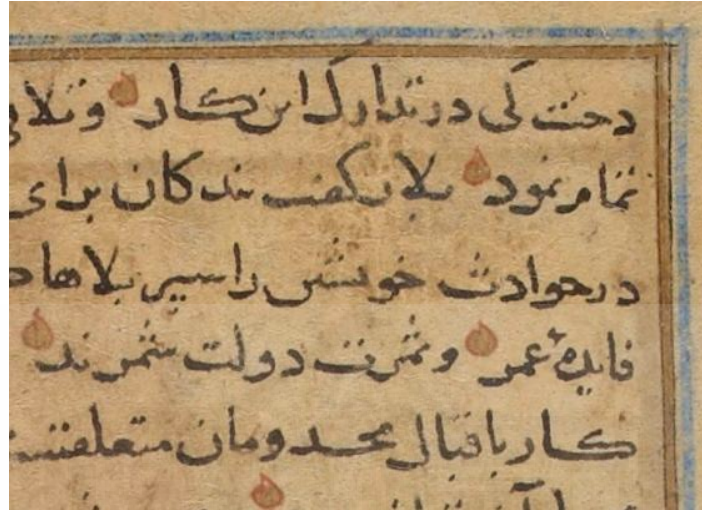 دخت کی در تدارک این کار وتلافی
تمام نمود بلار کفت بندکان برای
در حوادث خویشتن را سپر بلاها
فایدهٔ عمر و ثمرت دولت شمرند
کار باقبال مخدومان متعلقست